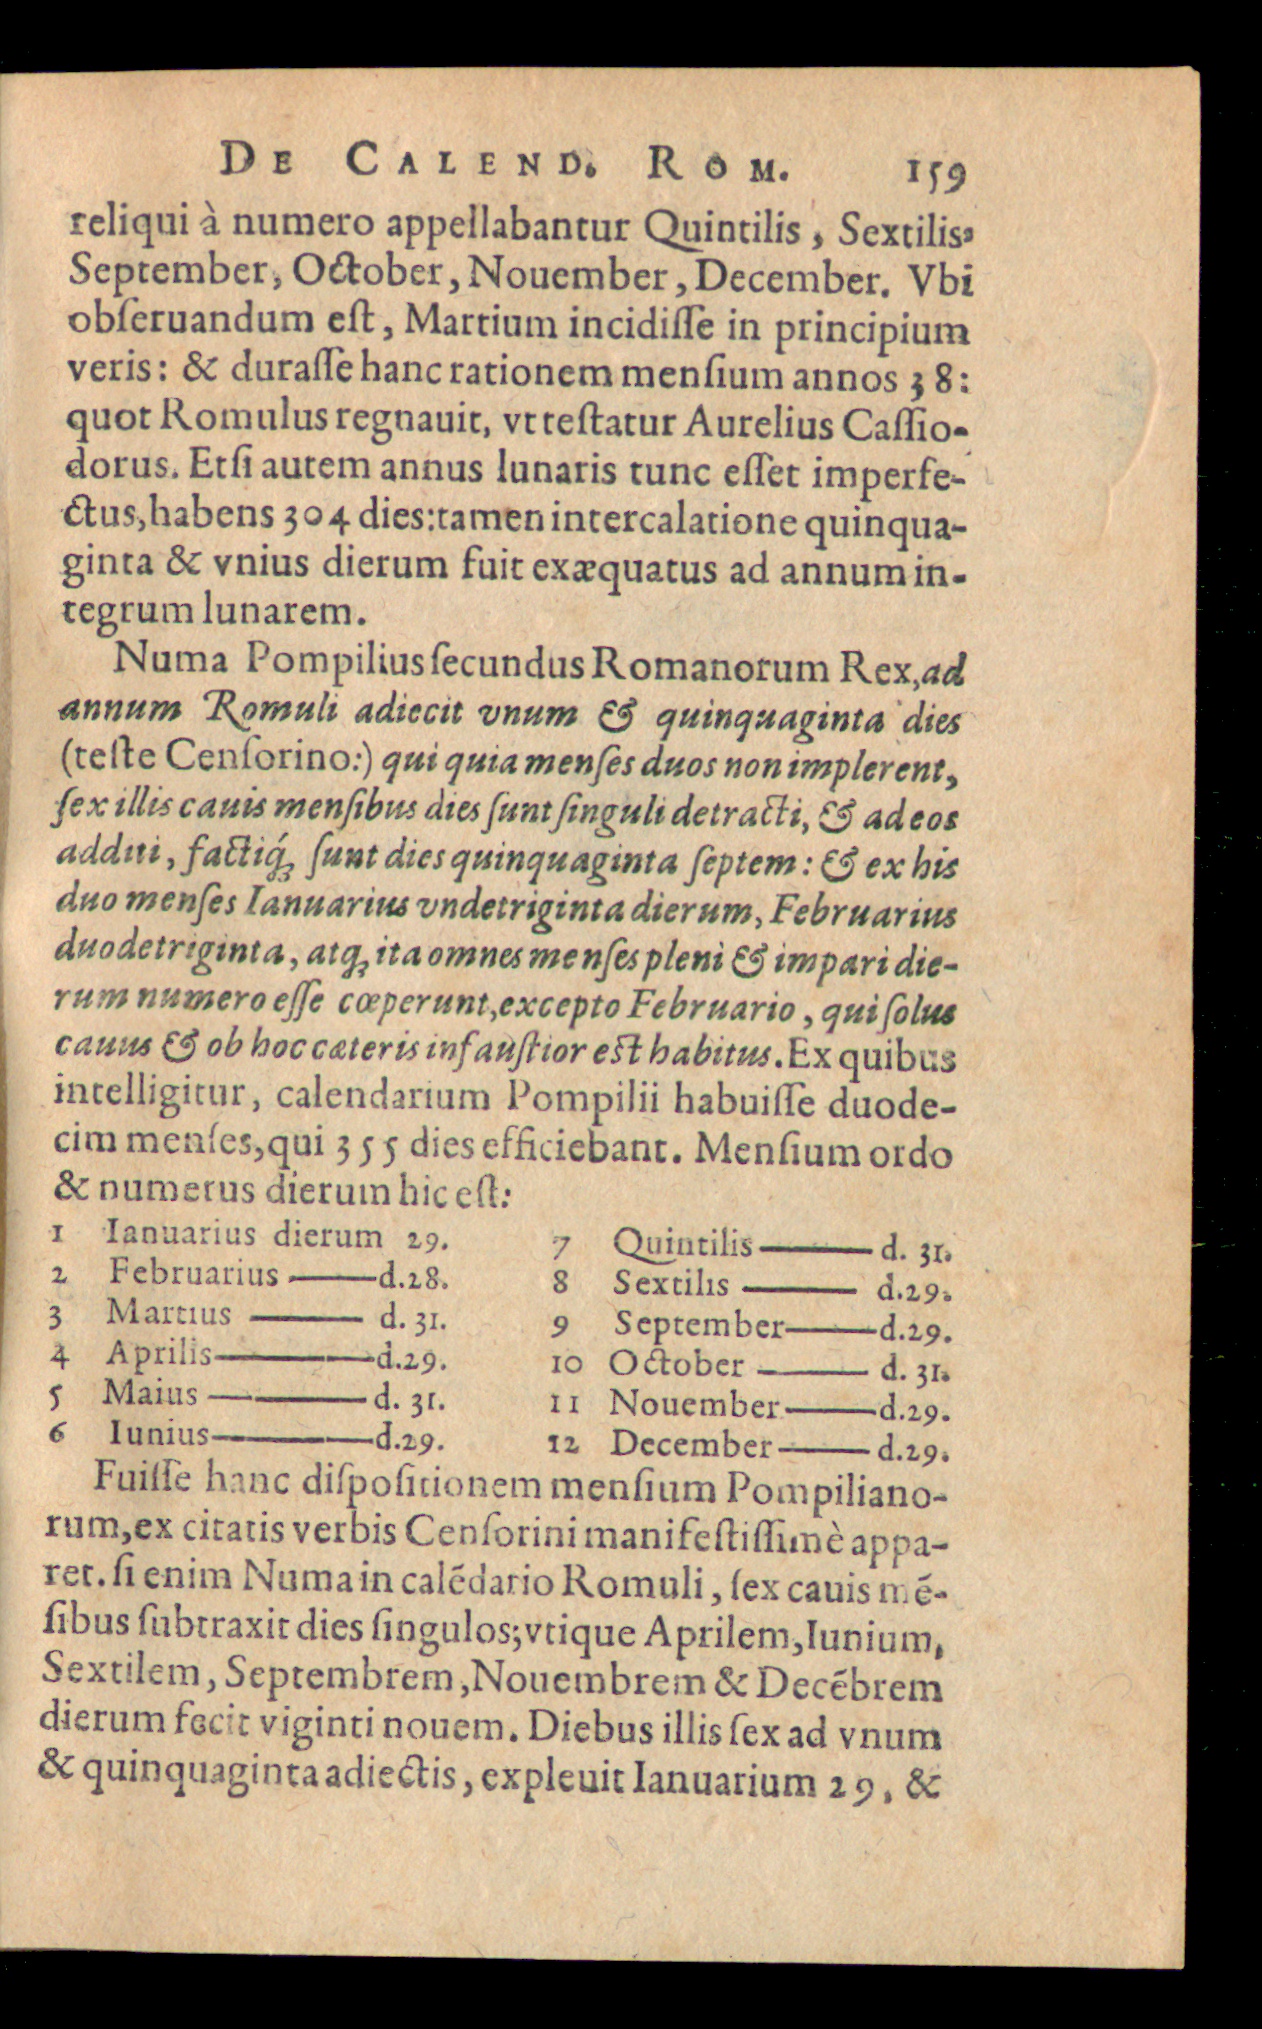 DE CALEND. ROM. 159
reliqui à numero appellabantur Quintilis, Sextilis,
September, October, Nouember, December. Vbi
obſeruandum eſt, Martium incidiſſe in principium
veris: & duraſſe hanc rationem menſium annos 38:
quot Romulus regnauit, vt teſtatur Aurelius Caſſio-
dorus. Etſi autem annus lunaris tunc eſſet imperfe-
ctus, habens 304 dies: tamen intercalatione quinqua-
ginta & vnius dierum fuit exæquatus ad annum in-
tegrum lunarem.
Numa Pompilius ſecundus Romanorum Rex, ad
annum Romuli adiecit vnum & quinquaginta dies
(teſte Cenſorino:) qui quia menſes duos non implerent,
ſex illis cauis menſibus dies ſunt ſinguli detracti, & ad eos
additi, factiq́; ſunt dies quinquaginta ſeptem: & ex his
duo menſes Ianuarius vndetriginta dierum, Februarius
duodetriginta, atq; ita omnes menſes pleni & impari die-
rum numero eſſe cœperunt, excepto Februario, qui ſolus
cauus & ob hoc cæteris infauſtior eſt habitus. Ex quibus
intelligitur, calendarium Pompilii habuiſſe duode-
cim menſes, qui 355 dies efficiebant. Menſium ordo
& numerus dierum hic eſt:
1 Ianuarius dierum 29.
2 Februarius —— d.28.
3 Martius —— d. 31.
4 Aprilis —— d.29.
5 Maius —— d. 31.
6 Iunius —— d.29.
7 Quintilis —— d. 31.
8 Sextilis —— d.29.
9 September —— d.29.
10 October —— d. 31.
11 Nouember —— d.29.
12 December —— d.29.
Fuiſſe hanc diſpoſitionem menſium Pompiliano-
rum, ex citatis verbis Cenſorini manifeſtiſſimè appa-
ret. ſi enim Numa in calēdario Romuli, ſex cauis mē-
ſibus ſubtraxit dies ſingulos; vtique Aprilem, Iunium,
Sextilem, Septembrem, Nouembrem & Decēbrem
dierum fecit viginti nouem. Diebus illis ſex ad vnum
& quinquaginta adiectis, expleuit Ianuarium 29, &